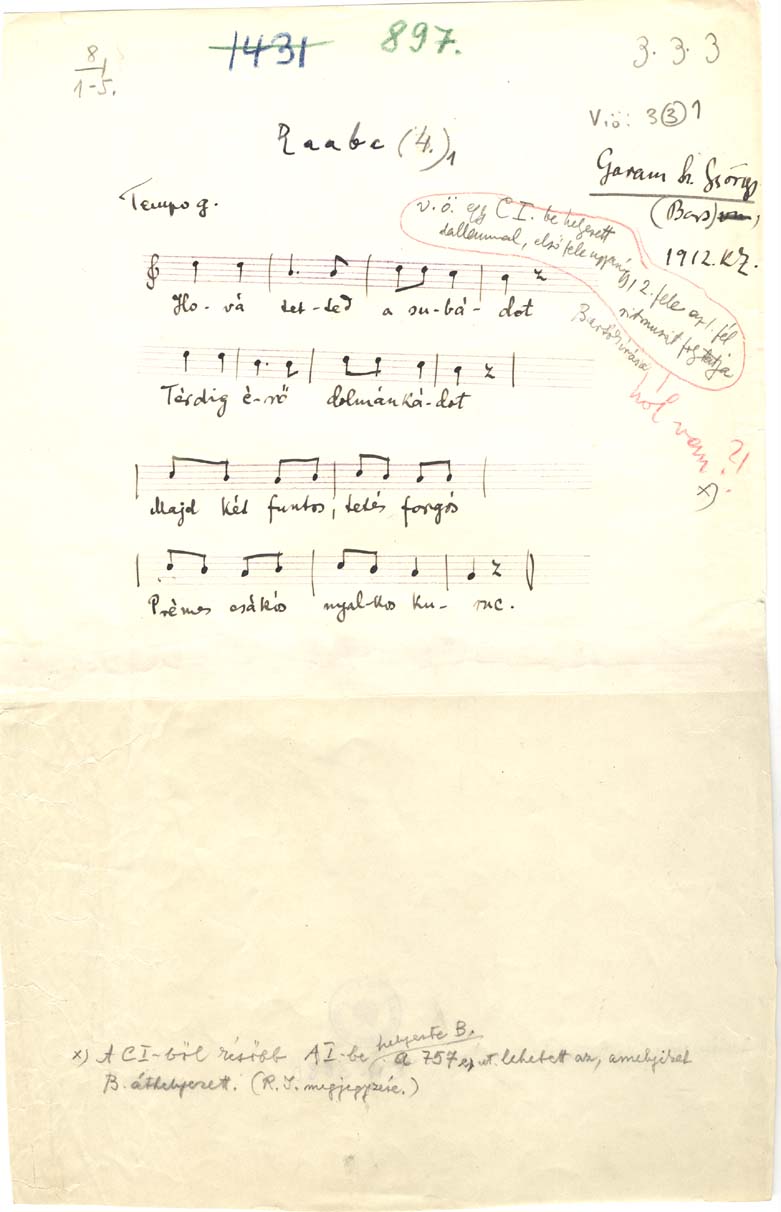 8/1-5.
1431
897.
3. 3. 3
V.ö: 3 3 1
Raabe (4.)1
Garam sz. György
(Bars),
1912. K.Z.
Tempo g.
v.ö. egy C I. be helyezett
dallammal, első fele ugyanígy, 2. fele az 1. fél
ritmusát folytatja
Bartók írása
hol van?!
x)
Ho-vá tet-ted a su-bá-dot
Térdig é-rő dolmánká-dot
Majd két funtos, tetés forgós
Prémes csákós nyal-kos ku-ruc.
helyezte B.
x) A CI-ből később AI-be a 757 lehetett az, amelyiket
B. áthelyezett. (R. I. megjegyzése.)